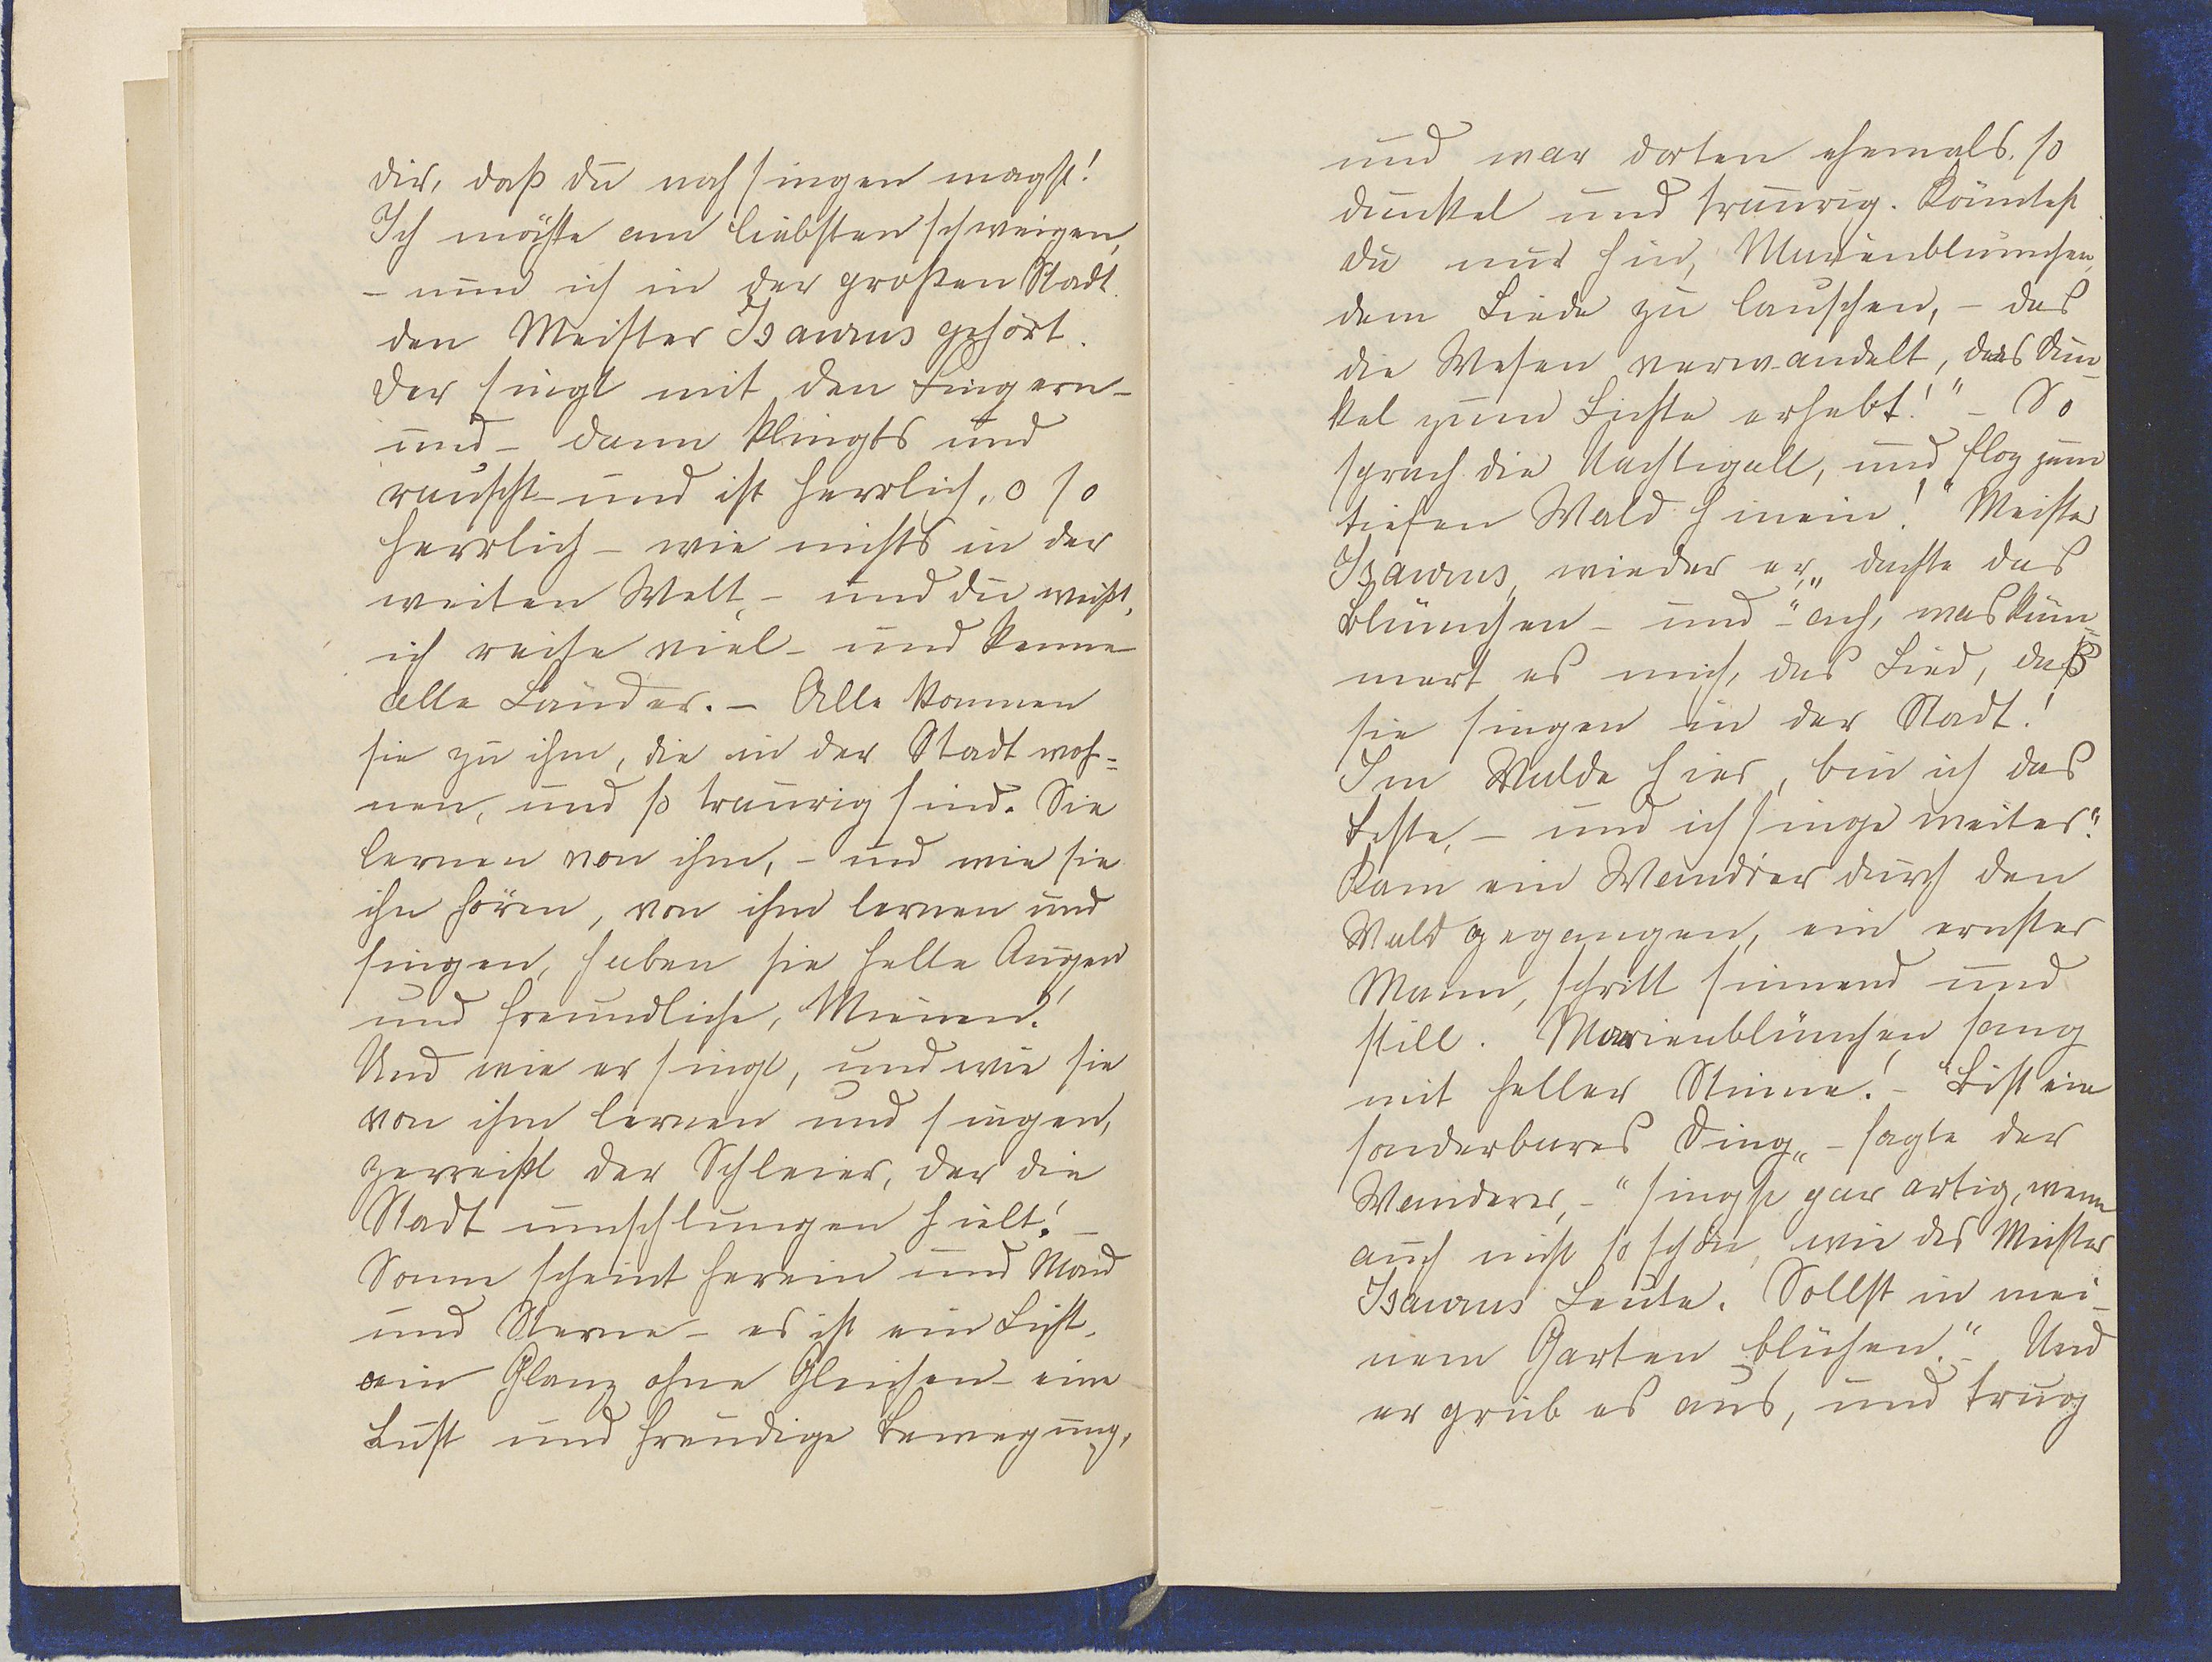 dir, daß du noch singen magst!
Ich möchte am liebsten schweigen,
– nun ich in der großen Stadt
den Meister Isaurus gehört.
Der singt mit den Fingern –
und – dann klingts und
rauscht – und ist herrlich, o so
herrlich – wie nichts in der
weiten Welt, – und du weißt,
ich reise viel – und kenne
alle Länder. – Alle kommen
sie zu ihm, die in der Stadt woh=
nen, und so traurig sind. Sie
lernen von ihm, – und wie sie
ihn hören, von ihm lernen und
singen, haben sie helle Augen
und freundliche, Mienen!
Und wie er singt, und wie sie
von ihm lernen und singen,
zerreißt der Schleier, der die
Stadt umschlungen hielt! –
Sonne scheint herein und Mond
und Sterne – es ist ein Licht,
ein Glanz ohne Gleichen – eine
Lust und freudige Bewegung,
und war dorten ehemals so
dunkel und traurig. Könntest
du nur hin, Marienblümchen,
dem Liede zu lauschen, – das
die Wesen verwandelt, das Dun-
kel zum Lichte erhebt!" – So
sprach die Nachtigall, und flog zum
tiefen Wald hinein! "Meister
Isaurus, wieder er„ dachte das
Blümchen – und – "ach, was küm=
mert es mich, das Lied, daß
sie singen in der Stadt!
Im Walde hier, bin ich das
Beste, – und ich singe weiter."
Kam ein Wandrer durch den
Wald gegangen, ein ernster
Mann, schritt sinnend und
still. Marienblümchen sang
mit heller Stimme! – "Bist ein
sonderbares Ding„ – sagte der
Wanderer, – "singst gar artig, wenn
auch nicht so schön, wie des Meister
Isaurus Leute. Sollst in mei-
nem Garten blühen." Und
er grub es aus, und trug